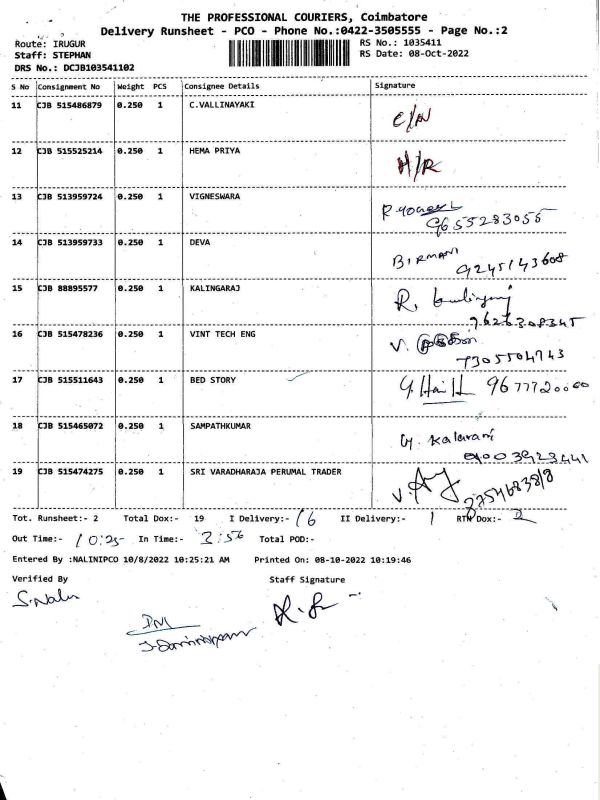 THE PROFESSIONAL COURIERS, Coimbatore
Delivery Runsheet - PCO - Phone No.:0422-3505555 - Page No.:2
Route: IRUGUR
RS No.: 1035411
Staff: STEPHAN
RS Date: 08-Oct-2022
DRS No.: DCJB103541102
S No Consignment No Weight PCS Consignee Details Signature
11 CJB 515486879 0.250 1 C.VALLINAYAKI
C/N
12 CJB 515525214 0.250 1 HEMA PRIYA
H/R
13 CJB 513959724 0.250 1 VIGNESWARA
9655283055
14 CJB 513959733 0.250 1 DEVA
BIRMANI
9245143608
15 CJB 88895577 0.250 1 KALINGARAJ
R.
7626308345
16 CJB 515478236 0.250 1 VINT TECH ENG
V.
7305504743
17 CJB 515511643 0.250 1 BED STORY
18 CJB 515465072 0.250 1 SAMPATHKUMAR
Kalavani
9003923441
19 CJB 515474275 0.250 1 SRI VARADHARAJA PERUMAL TRADER
V.
Tot. Runsheet:- 2 Total Dox:- 19 I Delivery:- 16 II Delivery:- 1 RTN Dox:- 2
Out Time:- 10:25 In Time:- 3:56 Total POD:-
Entered By :NALINIPCO 10/8/2022 10:25:21 AM Printed On: 08-10-2022 10:19:46
Verified By Staff Signature
S.Nalu